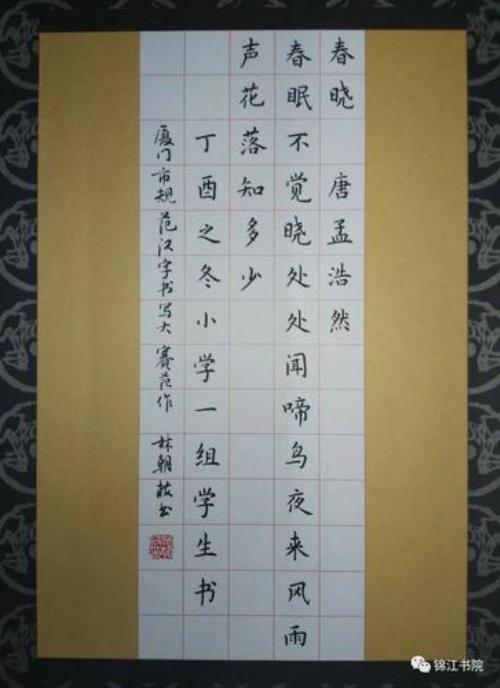 春晓 唐孟浩然
春眠不觉晓处处闻啼鸟夜来风雨
声花落知多少
丁酉之冬小学一组学生书
厦门市规范汉字书写大赛范作 林朝 书
锦江书院